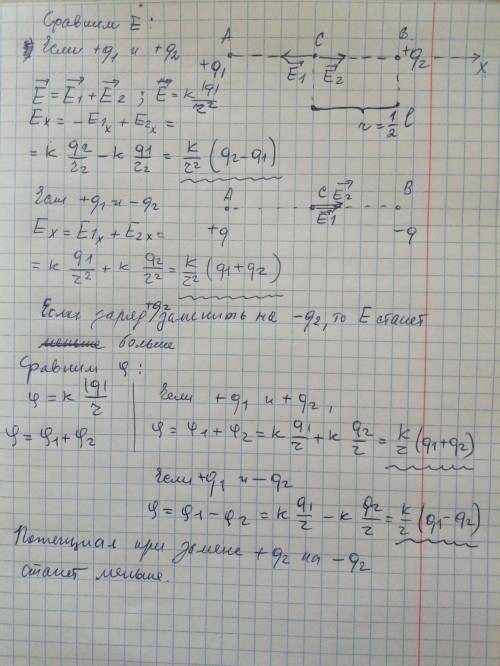 Сравним E:
Если +q1 и +q2
A C B
+q1 E1 E2 +q2 X
E = E1 + E2 ; E = k |q| / r²
r = 1/2 l
Ex = -E1x + E2x =
= k q2/r2 - k q1/r2 = k/r² (q2 - q1)
Если +q1 и -q2
A C E2 B
+q E1 -q
Ex = E1x + E2x =
= k q1/r² + k q2/r² = k/r² (q1 + q2)
Если заряд +q2 заменить на -q2, то E станет
меньше больше
Сравним φ:
φ = k |q|/r
Если +q1 и +q2,
φ = φ1 + φ2
φ = φ1 + φ2 = k q1/r + k q2/r = k/r (q1 + q2)
Если +q1 и -q2
φ = φ1 - φ2 = k q1/r - k q2/r = k/r (q1 - q2)
Потенциал при замене +q2 на -q2
станет меньше.